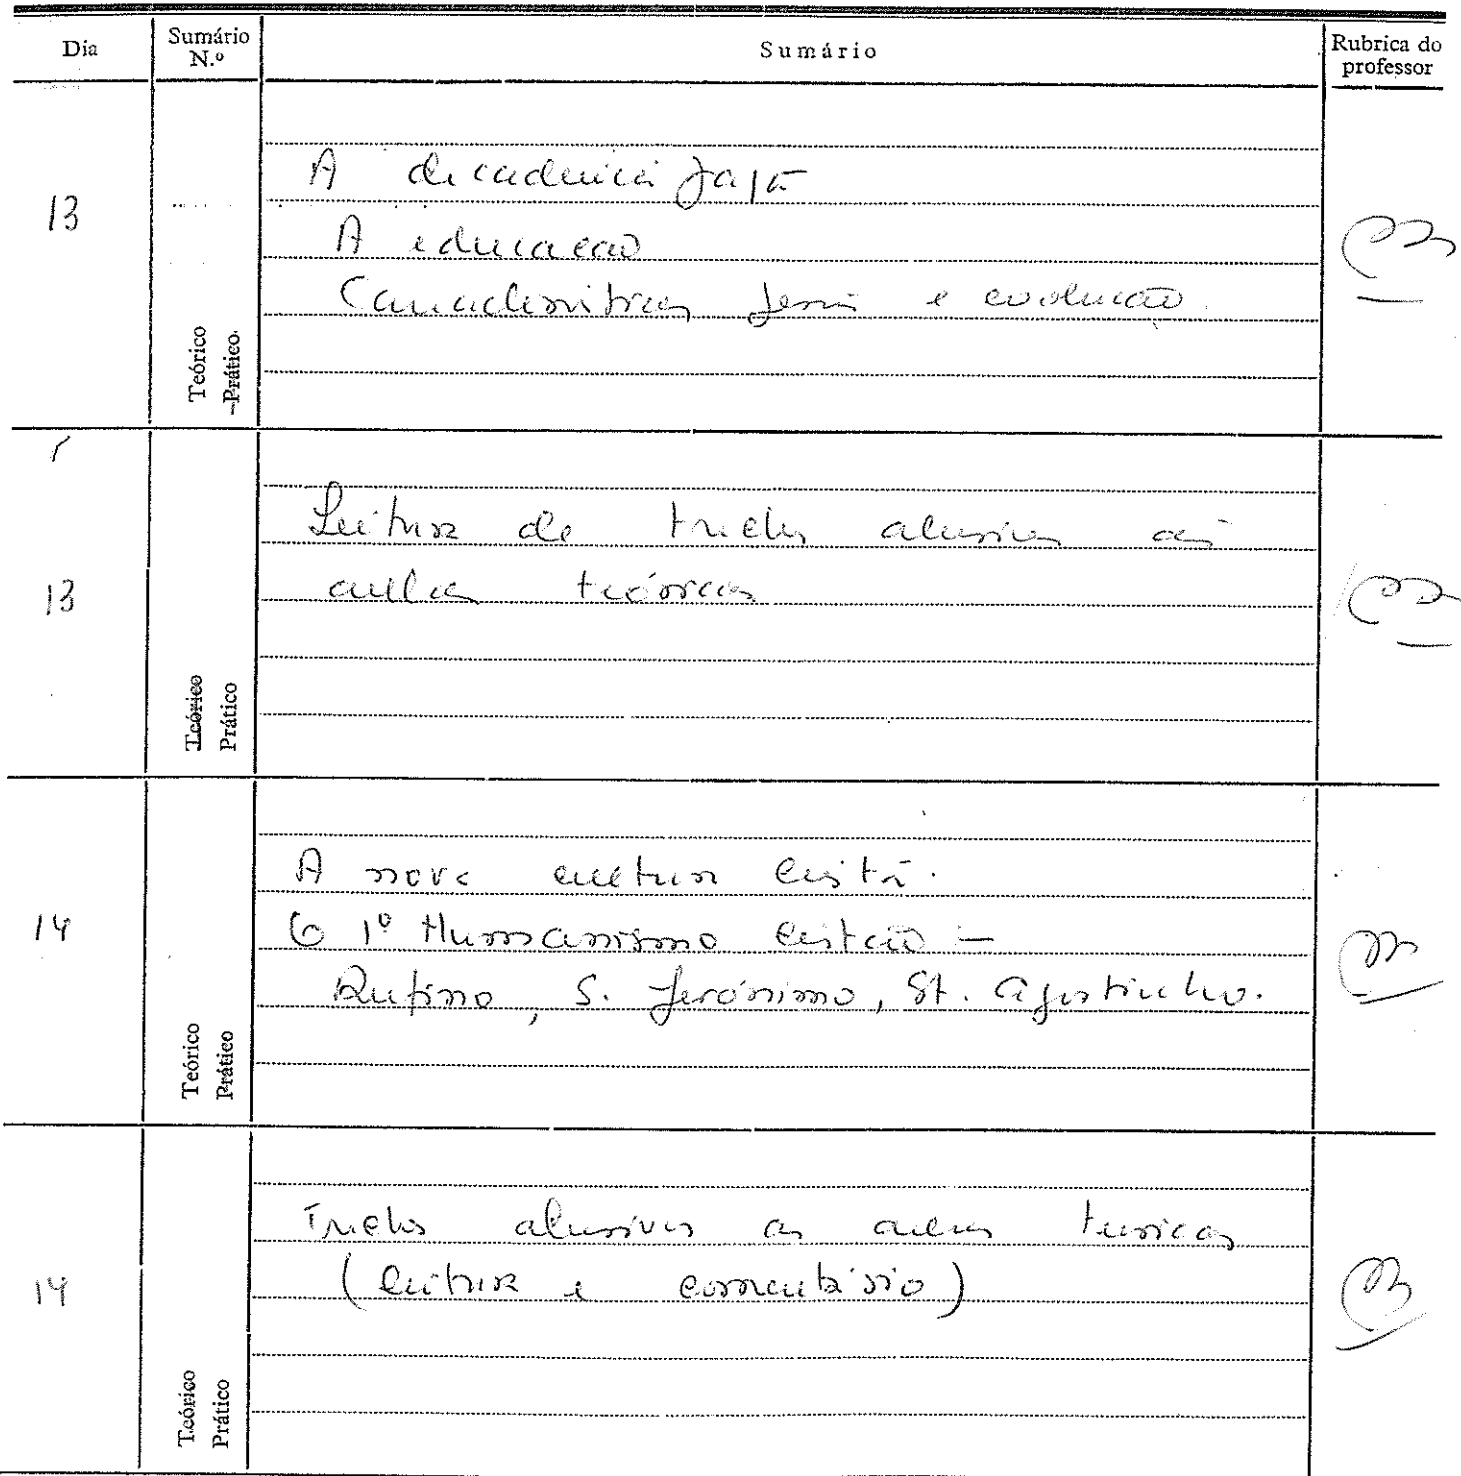 Dia
Sumário
N.º
Sumário
Rubrica do
professor
13
Teórico
Prático
A decadencia pagã
A educação
Caracteristicas gerais e evolução.
13
Teórico
Prático
Leitura de trechos alusivos às
aulas teóricas
14
Teórico
Prático
A nova cultura cristã.
O 1º Humanismo cristão -
Rufino, S. Jerónimo, St. Agostinho.
14
Teórico
Prático
Trechos alusivos as aulas teoricas
(leitura e comentário)